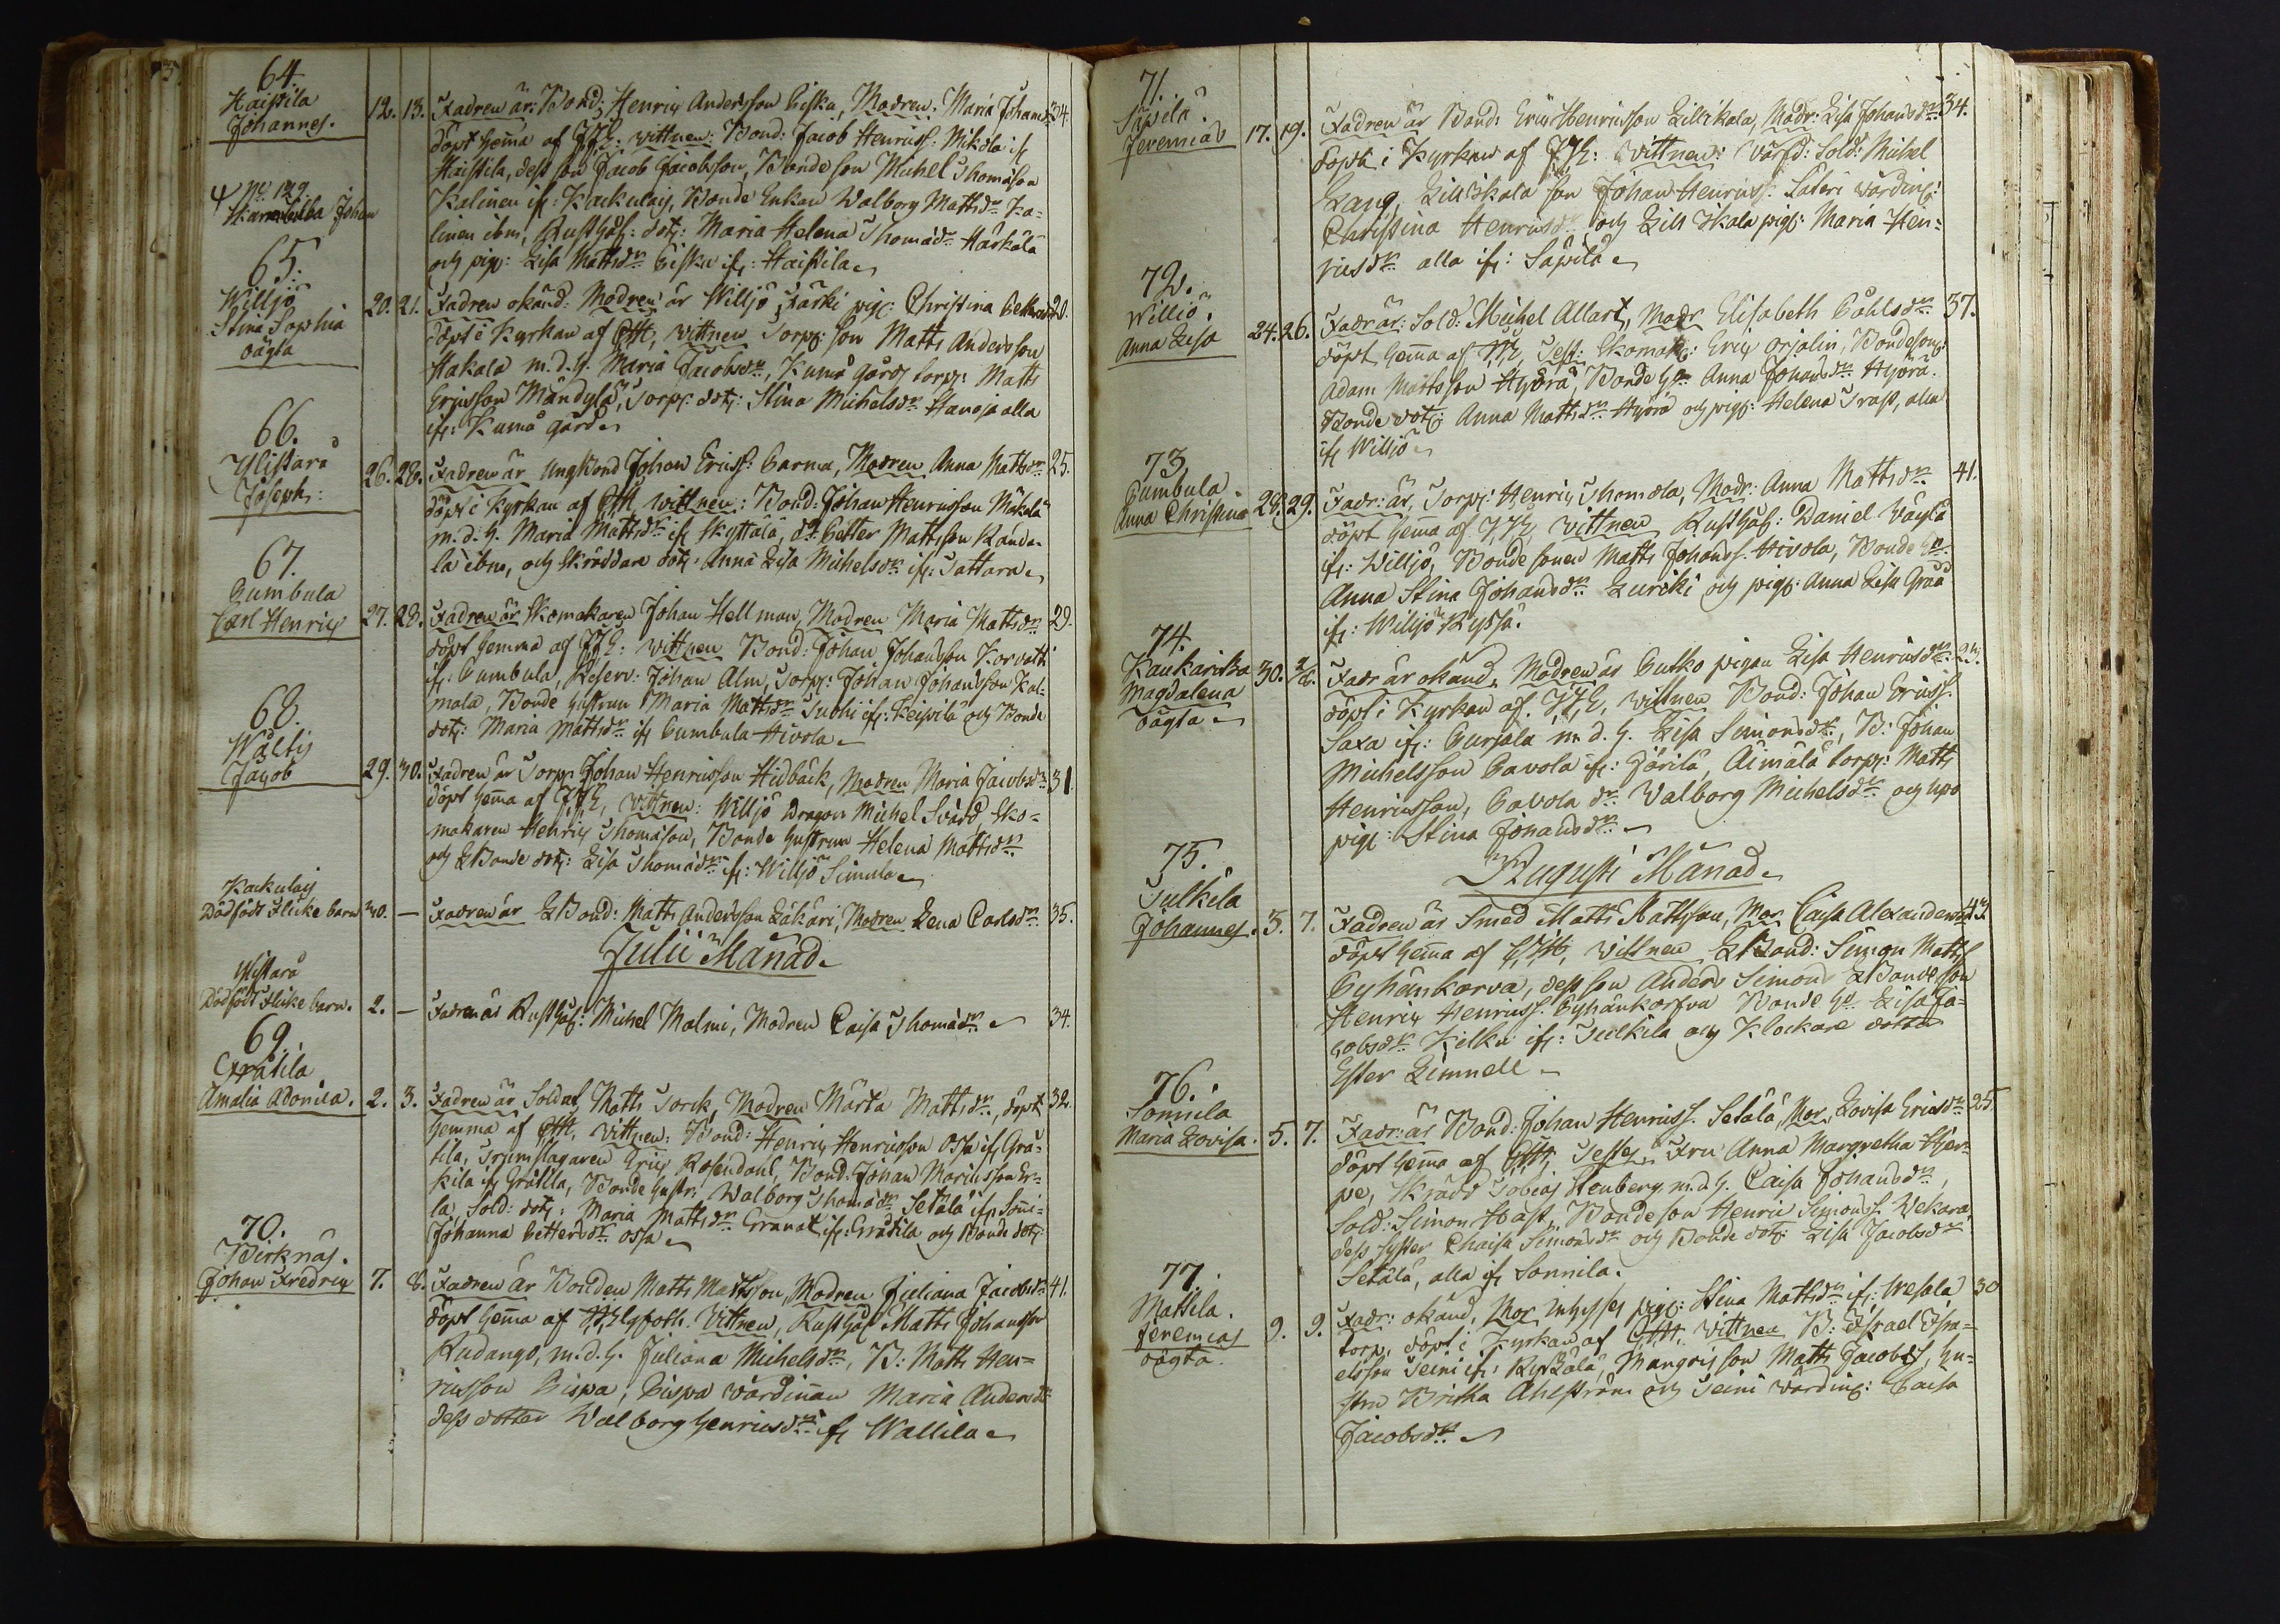 64.
Haistila
Johannes.
12. 13. Fadren är: Bond: Henric Andersson Piska, Modren: Maria Johansdr 34.
döpt hema af JJE: vittnen: Bond: Jacob Henricss: Mikola if
Haistila, dess son Jacob Jacobsson, Bondeson Michel Thomason
Kalinen if: Kackulais, Bonde Enkan Walborg Mattsdr Ka-
linen ibm, Rusthåf: dotr: Maria Helena Thomædr Härkälä
och pig: Lisa Mattsdr Piska if: Haistila
No 129.
Johan
65.
Willjö
Stina Sophia
oägta
20. 21. Fadren okänd: Modren är Willjö Särki pig: Christina 20.
döpt i Kyrkan af vittnen Torp: son Matts Andersson
Hakala m.d.h. Maria Jacobsdr, Kumå gårds torp: Matts
Ericsson Mändylä, Torp: dotr: Stina Michelsdr Hanoja alla
if: Kumå gård
66.
Ylistaro
Joseph:
26. 28. Fadren är UngBond Johan Ericss: Parma, Modren Anna Mattsdr 25.
döpt i Kyrkan af vittnen: Bond: Johan Henricsson Näkälä
m.d.h. Maria Mattsdr if Skyttälä, dr: Petter Mattsson Känd-
lä ibm, och Skräddare dotr: Anna Lisa Michelsdr if: Tattara
67.
Pumbula
Carl Henric
27. 28. Fadren är Skomakaren Johan Hellman, Modren Maria Mattsdr 29.
döpt hemma af JJE: vittnen Bond: Johan Johansson Korvatti
if: Pumbula, Reserv: Johan Alm, Torp: Johan Johansson Kal-
mala, Bonde hustrun Maria Mattsdr Tuohi if: Keipilä och Bonde
dotr: Maria Mattsdr if Pumbula Hivola
68.
Wältis
Jacob
29. 30. Fadren är Torp: Johan Henricsson Hidbäck, Modren Maria Jacobsdr 31.
döpt hema af JJE, vittnen: Willjö Dragon Michel Svärd, Sko-
makaren Henric Thomason, Bonde hustrun Helena Mattsdr
och LBonde dotr: Lisa Thomædr if: Willjö Simula
Kackulais
Dödfödt Flicke barn
30. — Fadren är LBond: Matts Andersson Läkäri, Modren Lena Carlsdr 35.
Julii Månad.
Ylistaro
Dödfödt Flicke barn.
2. — Fadren är Rusthåf: Michel Malmi, Modren Caisa Thomædr 34.
69.
Gråtila
Amalia Adonica.
2. 3. Fadren är Soldat Matts Torck, Modren Märta Mattsdr, döpt 32.
hemma af vittnen: Bond: Henric Henricsson Ossa if Grå-
tila, Trumslagaren Eric Rosendahl, Bond: Johan Mariusson Er-
kila if Gråtila, Bonde hustr: Walborg Thomædr Setälä if Soni-
la, Sold: dotr: Maria Mattsdr Granat if: Gråtila och Bonde dotr:
Johanna Pettersdr Ossa
70.
Birknäs.
Johan Fredric
7. 8. Fadren är Bonden Matts Mattsson, Modren Juliana Jacobsdr 41.
döpt hema af Elgfoth. Vittnen, Rusthåf: Matts Johansson
Rudango, m.d.h. Juliana Michelsdr, B: Matts Hen-
ricsson Pispa, Pispa värdinnan Maria Andersdr
dess dotter Walborg Henricsdr if Wallila
71.
Säpilä.
Jeremias
17. 19. Fadren är Bond: Eric Henricsson Lillikala, Modr: Lisa Johansdr 34.
döpt i Kyrkan af JJE: Vittnen: Värfd: Sold: Michel
Lang, Lillikala son Johan Henricss: Sateri värdin:
Christina Henricsdr och Lillikala pig: Maria Hen-
ricsdr alla if: Säpilä
72.
Willjö.
Anna Lisa
24. 26. Fadr är: Sold: Michel Allart, Modr Elisabeth Påhlsdr 37.
döpt hema af JJE, Test: Skomak: Eric Orjalin, Bondeson:
Adam Mattsson Hyörä, Bonde h: Anna Johansdr Hyörä.
Bonde dotr: Anna Mattsdr Hyörä och pig: Helena Trast, alla
if Willjö
73.
Pumbula.
Anna Christina
28. 29. Fadr: är, Torp: Henric Thomola, Modr: Anna Mattsdr 41.
döpt hema af JJE, Vittnen Rusthåf: Daniel Väylä
if: Willjö, Bonde sonen Matts Johanss: Hivola, Bonde h:
Anna Stina Johansdr Luriki och pig: Anna Lisa Grää
if: Willjö Kyssä.
74.
Kaukaritza
Magdalena
oägta
30. 2/8. Fadr är okänd, Modren är Putko pigan Lisa Henricsdr 23.
döpt i Kyrkan af. JJE, vittnen Bond: Johan Ericss.
Saxa if: Purjala m.d.h. Lisa Simonsdr, B: Johan
Michelsson Pavola if: Järilä, Äimälä torp: Matts
Henricsson, Pavola dr. Walborg Michelsdr och
pig: Stina Johansdr
Augusti Månad
75.
Tulkila
Johannes.
3. 7. Fadren är Smed Matts Mattsson, Mor Caisa Alexandersdr 43.
döpt hema af vittnen LBond: Simon Mattss:
Pyhänkorva, dess son Anders Simons: LBonde son
Henric Henricss: Pyhänkorfva Bonde h: Lisa Ja-
cobsdr Kilku if: Tulkila och Klockare dotter
Ester Limnell
76.
Sonnila
Maria Lovisa.
5. 7. Fadr: är Bond: Johan Henricss. Setälä, Mor, Lovisa Ericsdr 25.
döpt hema af Testes Fru Anna Margretha Hjer-
pe, Skrädd Tobias Stenberg m.d.h. Caisa Johansdr,
Sold: Simon Hast, Bondeson Henric Simonss. Wekara,
dess syster Chaisa Simonsdr och Bonde dotr: Lisa Jacobsdr
Setälä, alla if Sonnila.
77.
Mattila.
Jeremias
oägta.
9. 9. Fadr: okänd, Mor Inhyses pig: Stina Mattsdr if: Wesala 30
torp, döpt i Kyrkan af Vittnen B: Israel Isra-
elsson Teini if: Ryskälä, Mangris son Matts Jacobss, hu-
stru Britha Ahlström och Teini värdin: Caisa
Jacobsdr